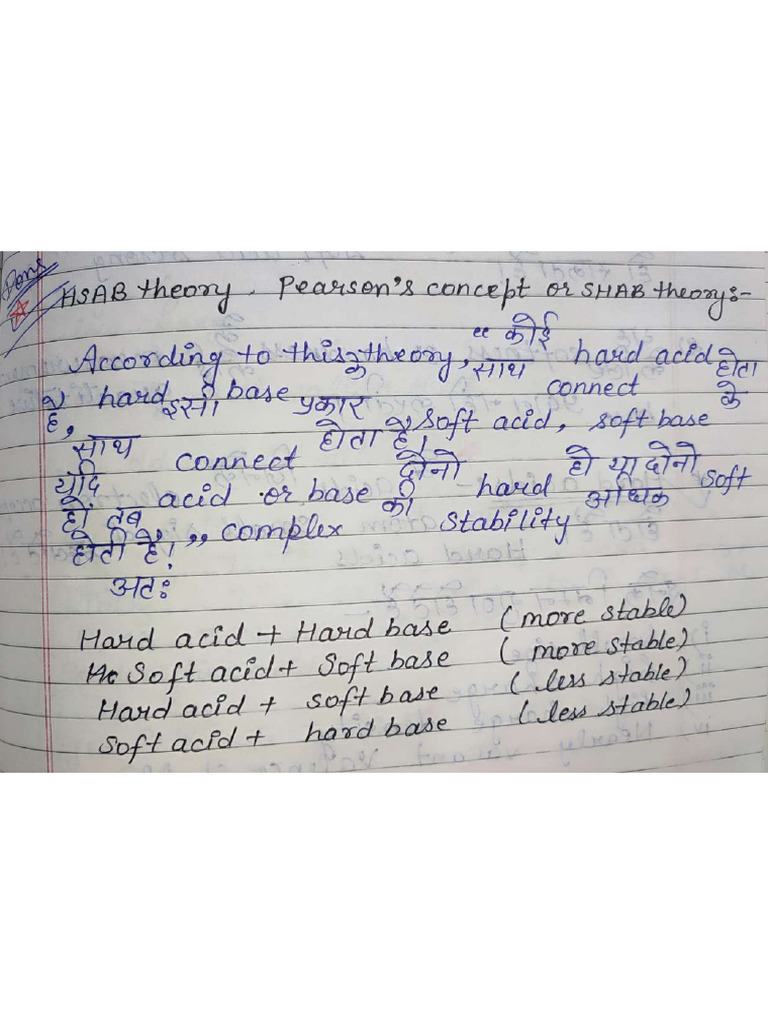 Done
HSAB theory, Pearson's concept or SHAB theory:-
According to this theory, “कोई hard acid
hard base के साथ connect होता
है, इसी प्रकार soft acid, soft base के
साथ connect होता है।
यदि acid or base दोनो hard हो या दोनो soft
हों तब complex की stability अधिक
होती है।”
अतः
Hard acid + Hard base (more stable)
Soft acid + Soft base (more stable)
Hard acid + soft base (less stable)
Soft acid + hard base (less stable)